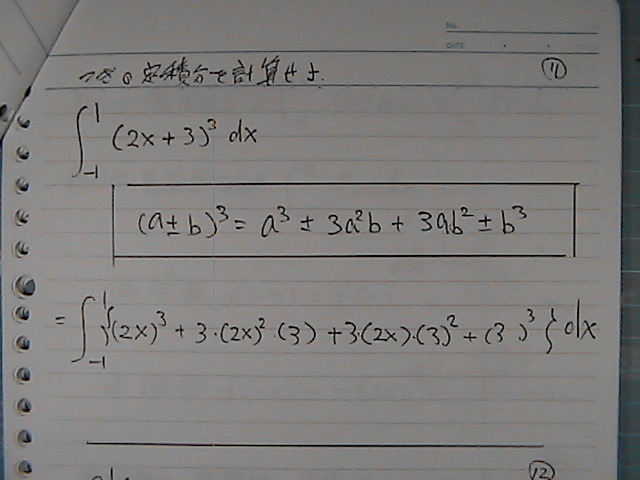 No.
DATE
次の定積分を計算せよ. ⑪
∫_{-1}^{1} (2x+3)³ dx
(a±b)³ = a³ ± 3a²b + 3ab² ± b³
= ∫_{-1}^{1} {(2x)³ + 3・(2x)²・(3) + 3・(2x)・(3)² + (3)³} dx
⑫